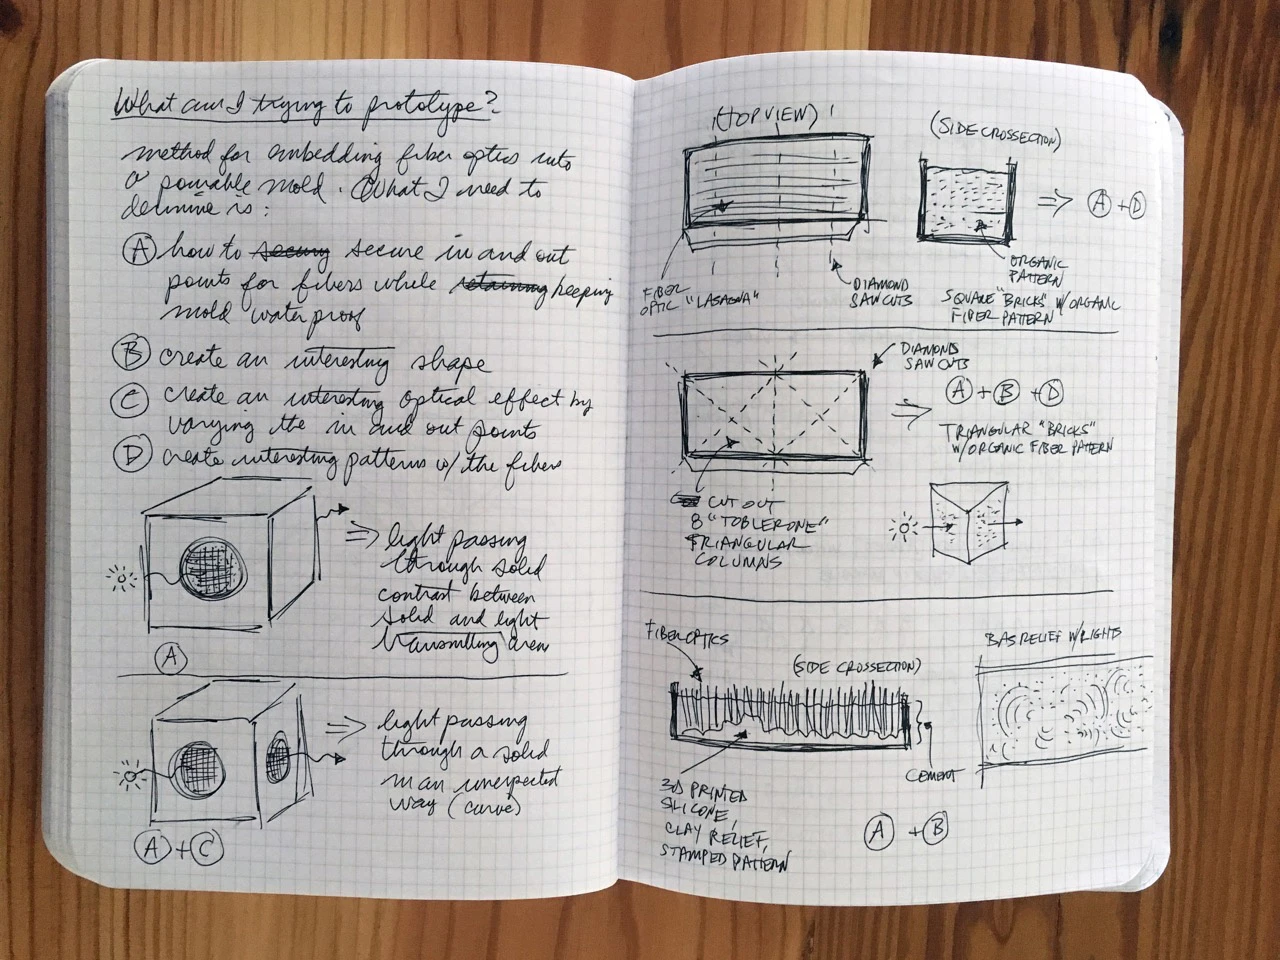 What am I trying to prototype?
method for embedding fiber optics into
a pourable mold. What I need to
determine is:
A how to securing secure in and out
points for fibers while retaining keeping
mold waterproof
B create an interesting shape
C create an interesting optical effect by
varying the in and out points
D create interesting patterns w/ the fibers
light passing
through solid
contrast between
solid and light
transmitting area
A
light passing
through a solid
in an unexpected
way (curve)
A + C
(TOP VIEW)
FIBER
OPTIC "LASAGNA"
DIAMOND
SAW CUTS
(SIDE CROSSECTION)
A + D
ORGANIC
PATTERN
SQUARE "BRICKS" W/ ORGANIC
FIBER PATTERN
DIAMOND
SAW CUTS
A + B + D
TRIANGULAR "BRICKS"
W/ORGANIC FIBER PATTERN
CUT OUT
8 "TOBLERONE"
TRIANGULAR
COLUMNS
FIBER OPTICS
(SIDE CROSSECTION)
CEMENT
3D PRINTED
SILICONE,
CLAY RELIEF,
STAMPED PATTERN
A + B
BAS RELIEF W/